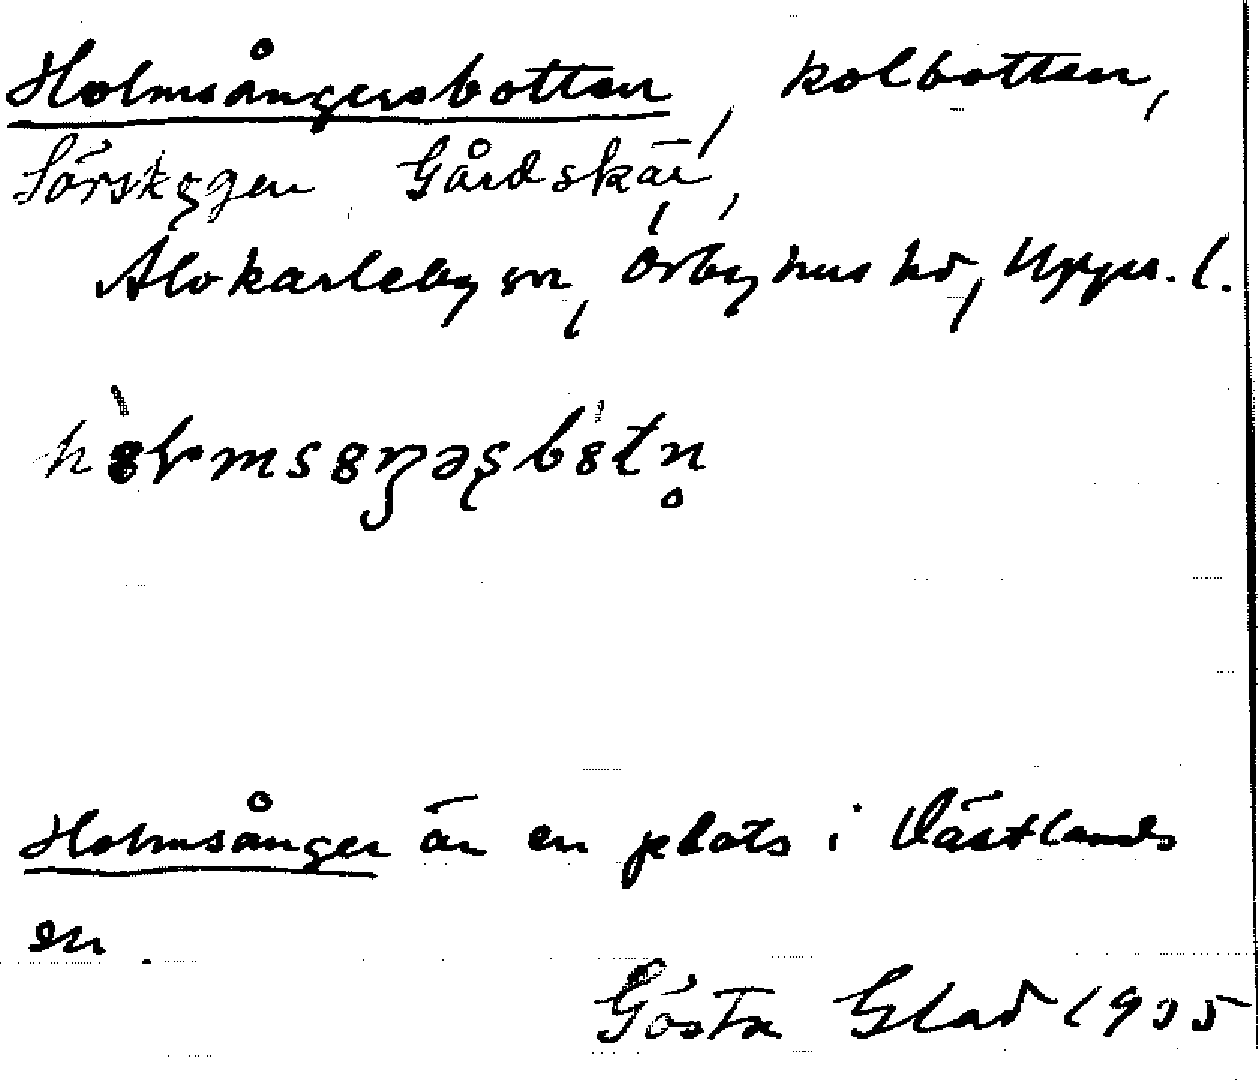 Holmsångersbotten, kolbotten,
Sörskogen Gårdskär,
Älvkarleby sn, Örbyhus hd, Upps. l.
Holmsånger är en plats i Västlands
sn.
Gösta Glad 1935